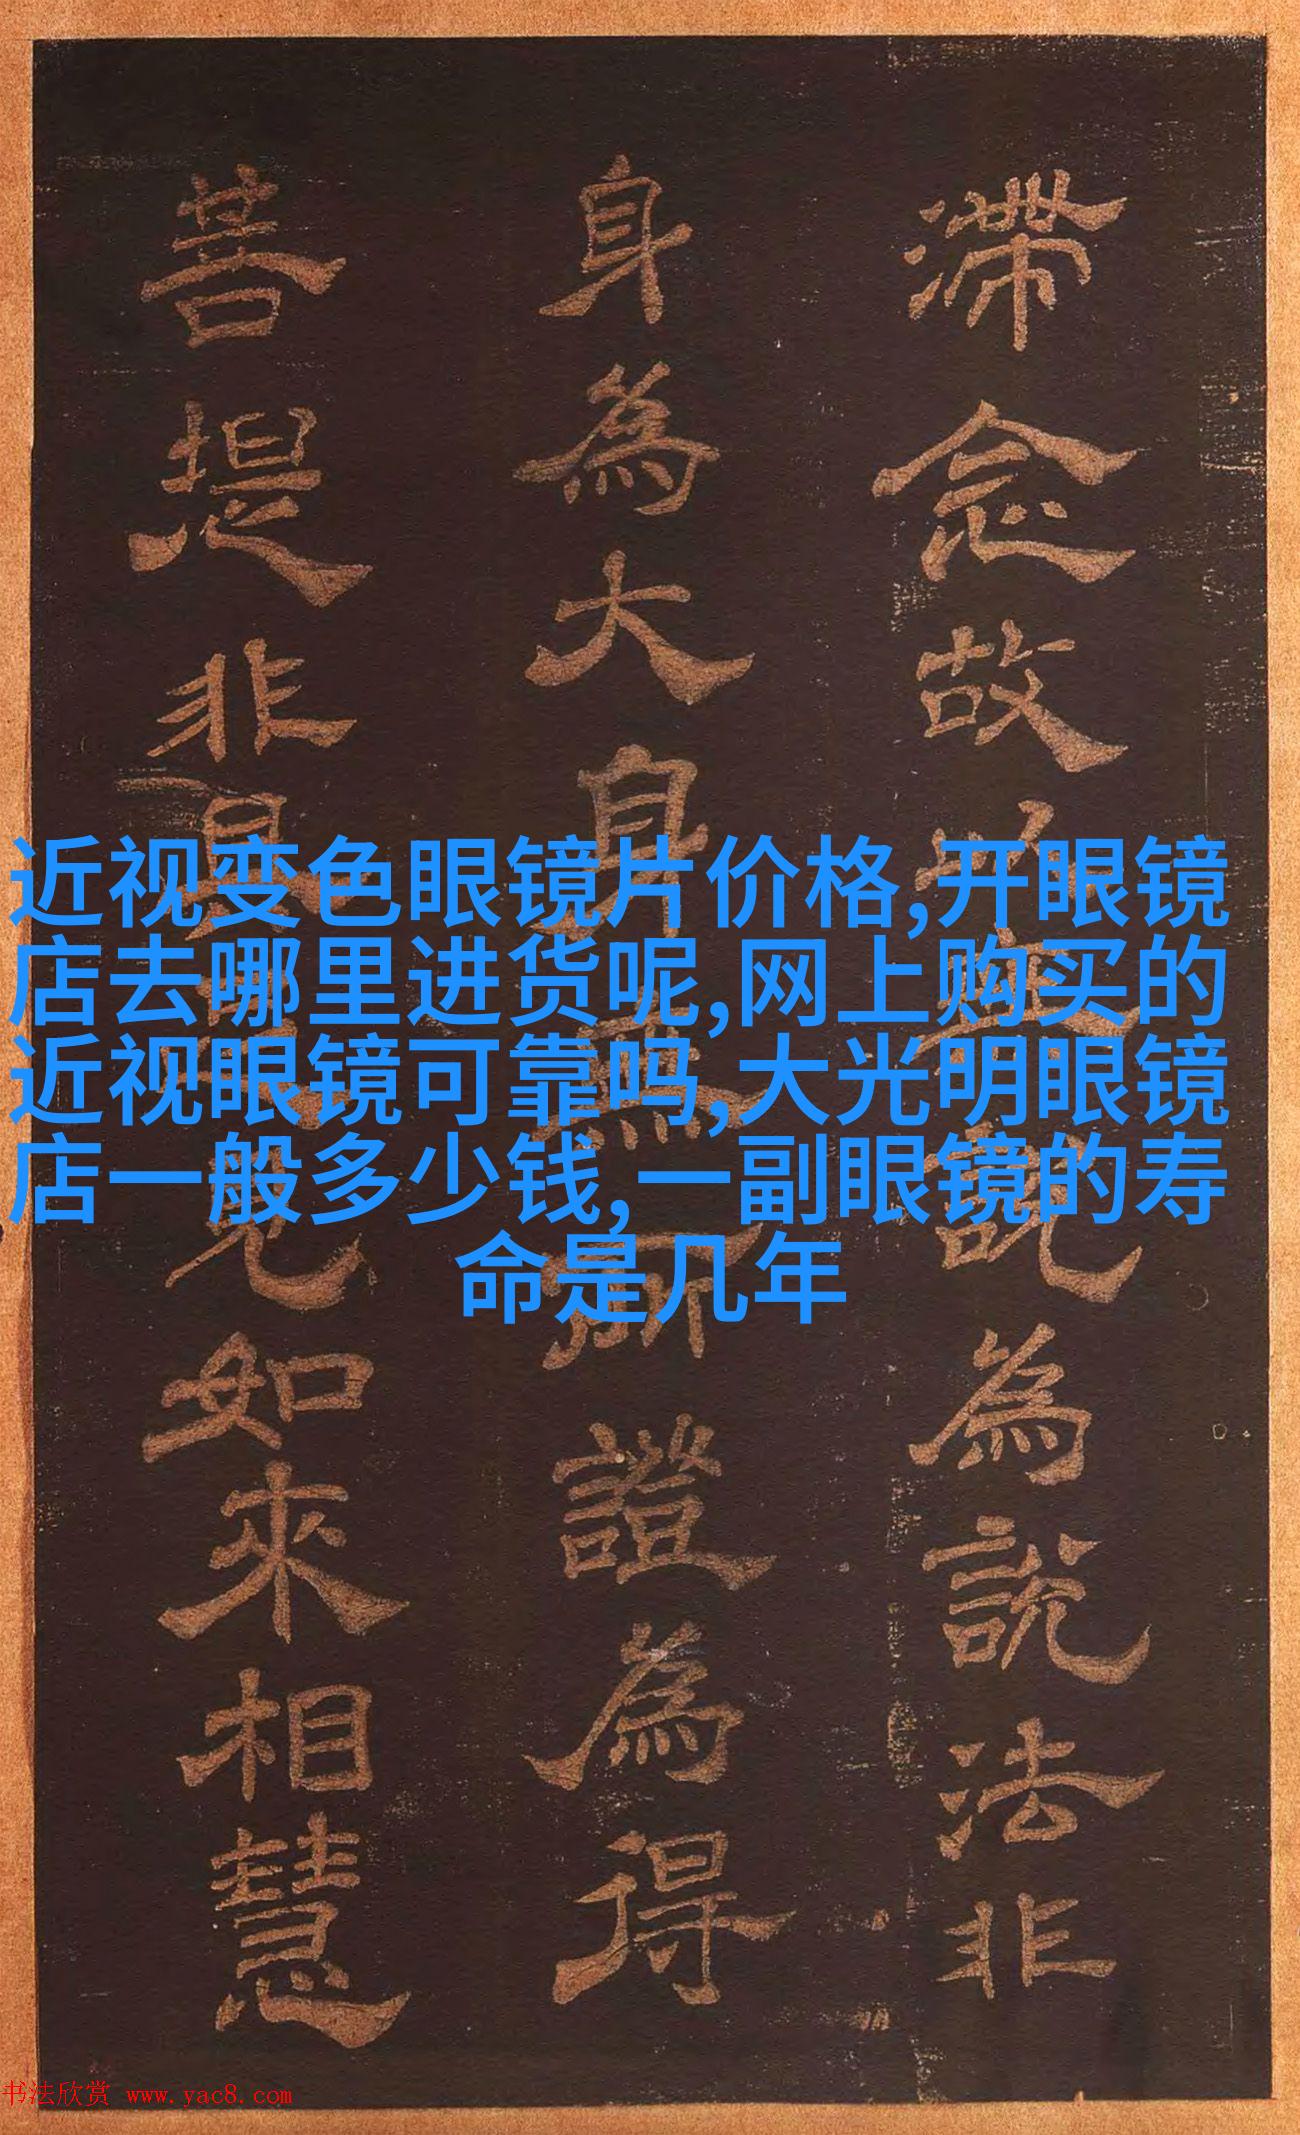 滞念故以
說為說法非
身為大身
所證為得
菩提非是
見如來相慧
近视变色眼镜片价格,开眼镜
店去哪里进货呢,网上购买的
近视眼镜可靠吗,大光明眼镜
店一般多少钱,一副眼镜的寿
命是几年
书法欣赏 www.yac8.com